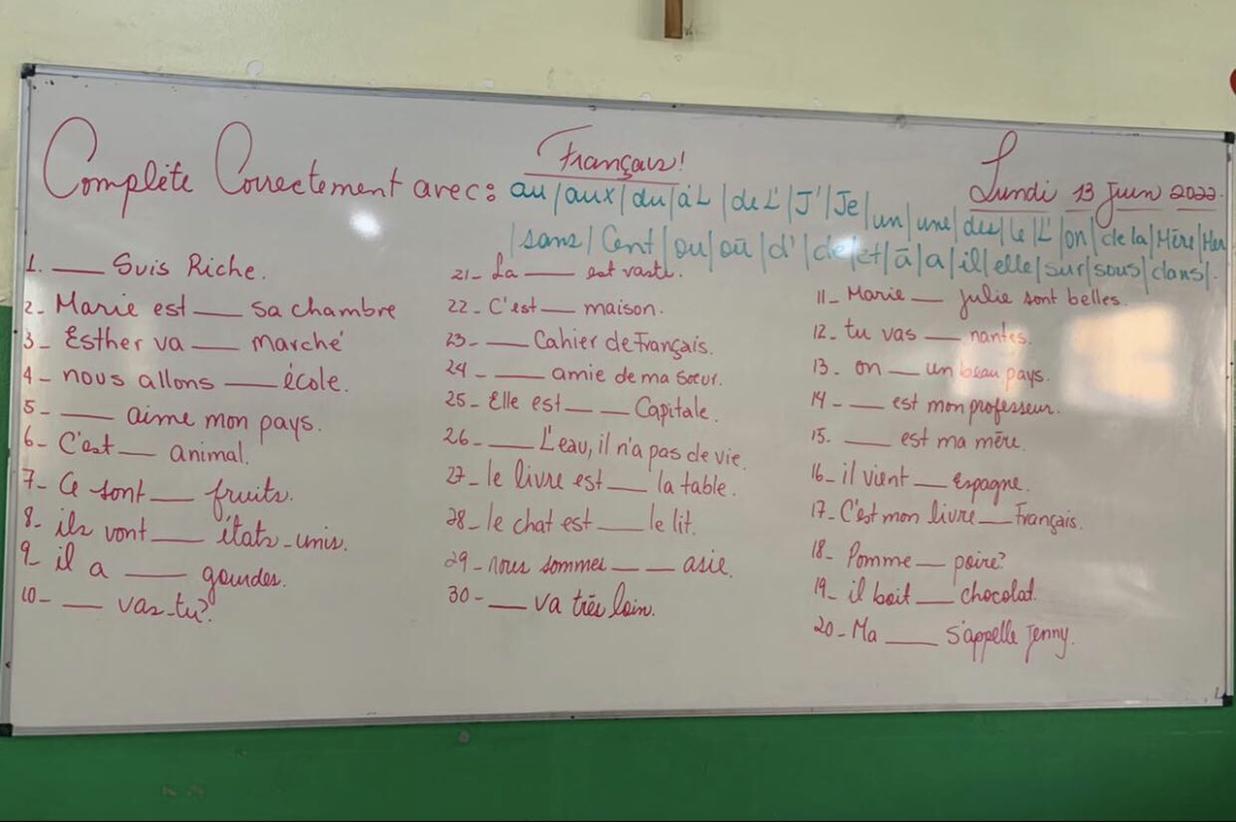 Français!
Lundi 13 Juin 2022.
Complète Correctement avec: au/aux/du/à L'/de L'/J'/Je/un/une/des/Le/L'/on/de la/Mère/Mer
/sans/Cent/ou/où/d'/de/et/à/a/il/elle/sur/sous/dans/.
1. ___ Suis Riche.
2- Marie est ___ sa chambre
3- Esther va ___ marché
4- nous allons ___ école.
5- ___ aime mon pays.
6- C'est ___ animal.
7- Ce sont ___ fruits.
8- ils vont ___ états-unis.
9- il a ___ gourdes.
10- ___ vas-tu?
21- La ___ est vaste.
22- C'est ___ maison.
23- ___ Cahier de Français.
24- ___ amie de ma soeur.
25- Elle est ___ ___ Capitale.
26- ___ L'eau, il n'a pas de vie.
27- le livre est ___ la table.
28- le chat est ___ le lit.
29- nous sommes ___ ___ asie.
30- ___ va très loin.
11- Marie ___ Julie sont belles.
12- tu vas ___ nantes.
13- on ___ un beau pays.
14- ___ est mon professeur.
15. ___ est ma mère.
16- il vient ___ Espagne.
17- C'est mon livre ___ Français.
18- Pomme ___ poire?
19- il boit ___ chocolat.
20- Ma ___ s'appelle Jenny.